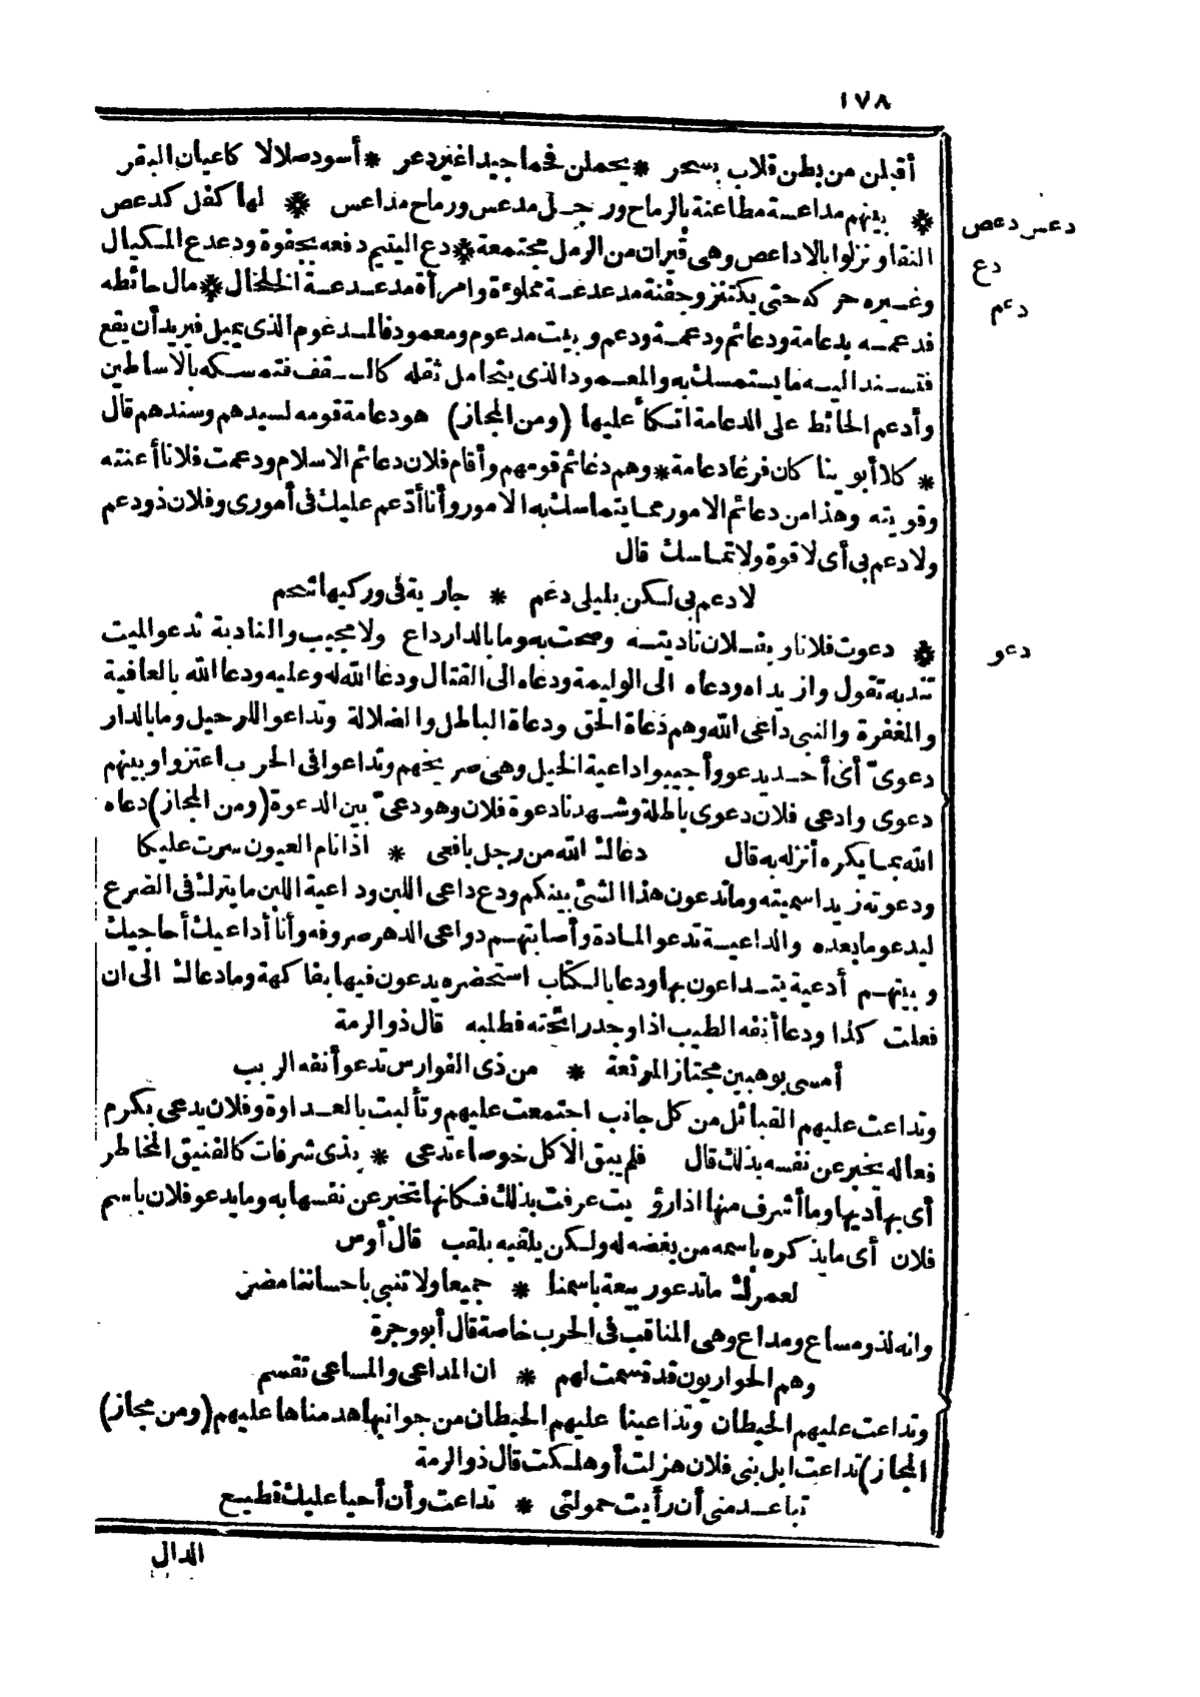 ١٧٨
أقبلن من بطن قلاب بسحر * يحملن فحما جيدا غير دعر * أسود صلالا كاعيان البقر
* بينهم مداعسة مطاعنة بالرماح ورجل مدعس ورماح مداعس * لها كفل كدعص
دعس دعص
النقا ونزلوا بالاداعص وهى قيزان من الرمل مجتمعة * دع اليتيم دفعه بجفوة ودعدع المكيال
دع
وغيره حركه حتى يكتنز وجفنة مدعدعة مملوءة وامرأة مدعدعة الخلخال * مال حائطه
دعم
فدعمه بدعامة ودعائم ودعمة ودعم وبيت مدعوم ومعمود فالمدعوم الذى يميل فيريد أن يقع
فتسند اليه ما يستمسك به والمعمود الذى يتحامل ثقله كالسقف فتمسكه بالاساطين
وأدعم الحائط على الدعامة اتكأ عليها (ومن المجاز) هو دعامة قومه لسيدهم وسندهم قال
* كلا أبوينا كان فرعا دعامة * وهم دعائم قومهم وأقام فلان دعائم الاسلام ودعمت فلانا أعنته
وقويته وهذا من دعائم الامور مما يتماسك به الامور وأنا أدعم عليك فى أمورى وفلان ذو دعم
ولا دعم بى أى لا قوة ولا تماسك قال
لا دعم بى لكن بليلى دعم * جارية فى وركيها شحم
* دعوت فلانا وبفلان ناديته وصحت به وما بالدار داع ولا مجيب والنادبة تدعو الميت
دعو
تندبه تقول وازيداه ودعاه الى الوليمة ودعاه الى القتال ودعا الله له وعليه ودعا الله بالعافية
والمغفرة والنبى داعى الله وهم دعاة الحق ودعاة الباطل والضلالة وتداعوا للرحيل وما بالدار
دعوىّ أى أحد يدعو وأجيبوا داعية الخيل وهى صريخهم وتداعوا فى الحرب اعتزوا وبينهم
دعوى وادعى فلان دعوى باطلة وشهدنا دعوة فلان وهو دعىّ بين الدعوة (ومن المجاز) دعاه
الله بما يكره أنزله به قال دعاك الله من رجل بافعى * اذا نام العيون سرت عليكا
ودعوته زيدا سميته وما تدعون هذا الشئ بينكم ودع داعى اللبن وداعية اللبن ما يترك فى الضرع
ليدعو ما بعده والداعية تدعو المادة وأصابتهم دواعى الدهر صروفه وأنا أداعيك أحاجيك
وبينهم أدعية يتداعون بها ودعا بالكتاب استحضره يدعون فيها بفاكهة وما دعاك الى ان
فعلت كذا ودعا أنفه الطيب اذا وجد رائحته فطلبه قال ذو الرمة
أمسى بوهبين مجتازا لمرتعه * من ذى الفوارس تدعو أنفه الربب
وتداعت عليهم القبائل من كل جانب اجتمعت عليهم وتألبت بالعداوة وفلان يدعى بكرم
فعاله يخبر عن نفسه بذلك قال فلم يبق الا كل خوصاء تدعى * بذى شرفات كالفنيق المخاطر
أى بهاديها وما أشرف منها اذا رؤيت عرفت بذلك فكانها تخبر عن نفسها به وما يدعو فلان باسم
فلان أى ما يذكره باسمه من بغضه له ولكن يلقبه بلقب قال أوس
لعمرك ما تدعو ربيعة باسمنا * جميعا ولا تنبى باحساننا مضر
وانه لذو مساع ومداع وهى المناقب فى الحرب خاصة قال أبو وجزة
وهم الحواريون قد قسمت لهم * ان المداعى والمساعى تقسم
وتداعت عليهم الحيطان وتداعينا عليهم الحيطان من جوانبها هدمناها عليهم (ومن مجاز)
المجاز) تداعت ابل بنى فلان هزلت أو هلكت قال ذو الرمة
تباعد منى أن رأيت حمولتى * تداعت وأن أحيا عليك قطيع
الدال